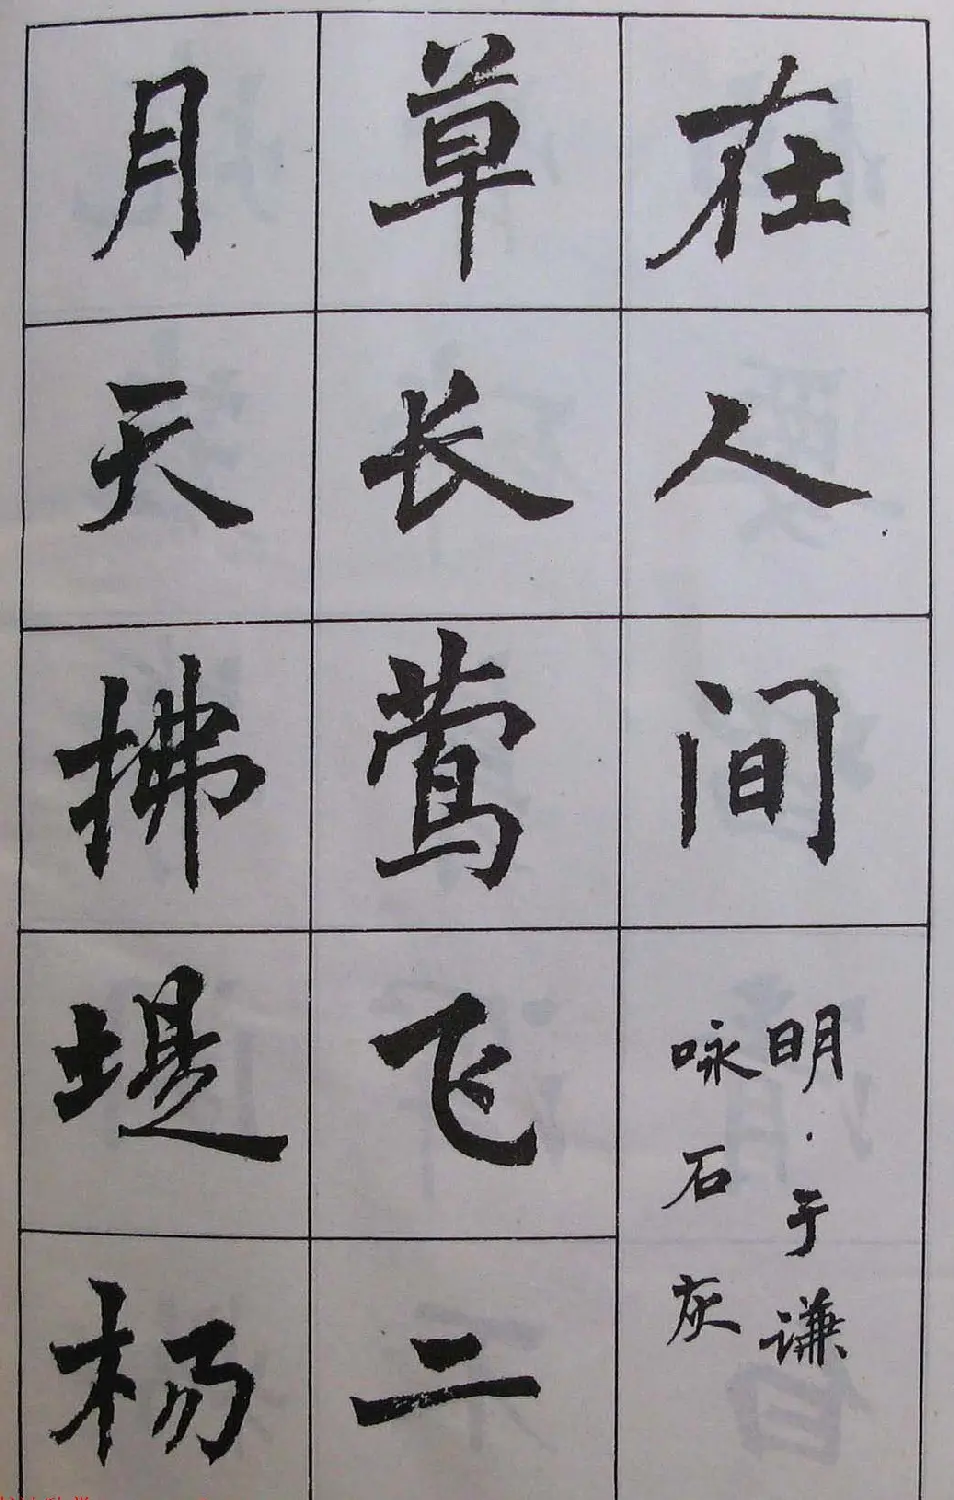 在人间
明·于谦
咏石灰
草长莺飞二
月天拂堤杨